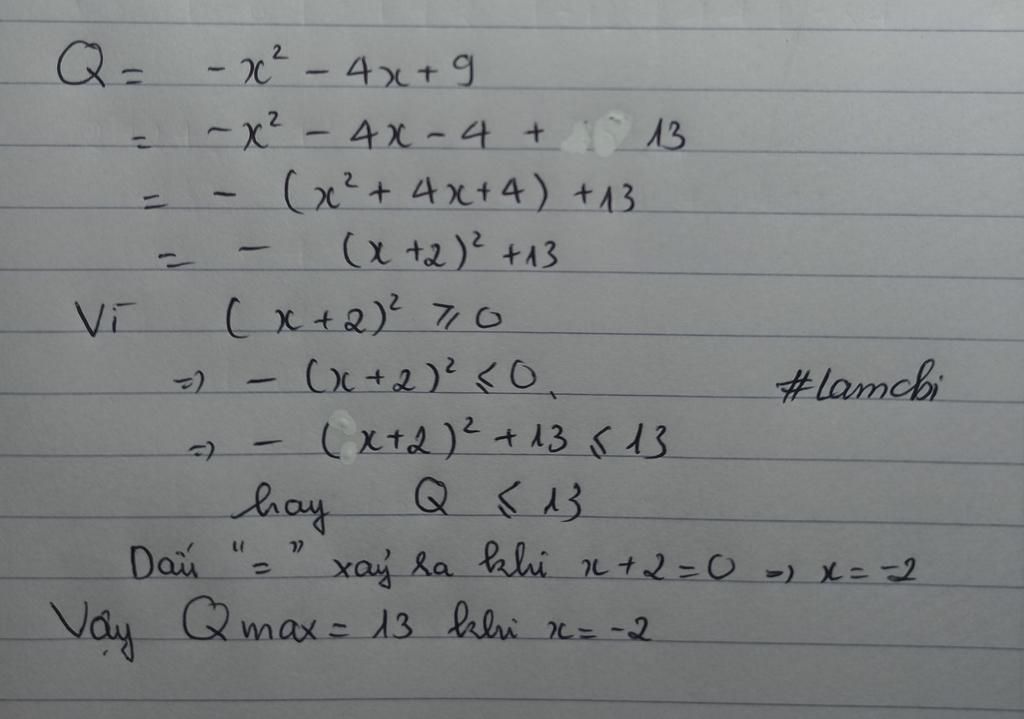 Q = -x² - 4x + 9
= -x² - 4x - 4 + 13
= - (x² + 4x + 4) + 13
= - (x + 2)² + 13
Vì (x + 2)² ≥ 0
=> - (x + 2)² ≤ 0
#lamchi
=> - (x + 2)² + 13 ≤ 13
hay Q ≤ 13
Dấu "=" xảy ra khi x + 2 = 0 => x = -2
Vậy Qmax = 13 khi x = -2